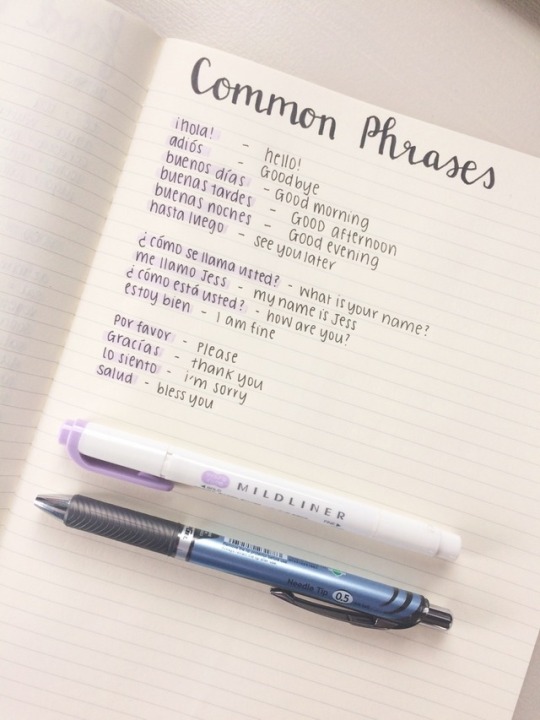 Common Phrases
¡hola! - hello!
adiós - Goodbye
buenos días - Good morning
buenas tardes - GOOD afternoon
buenas noches - Good evening
hasta luego - see you later
¿cómo se llama usted? - what is your name?
me llamo Jess - my name is Jess
¿cómo está usted? - how are you?
estoy bien - I am fine
Por favor - Please
Gracías - thank you
lo siento - i'm sorry
salud - bless you
MILDLINER
Needle Tip 0.5